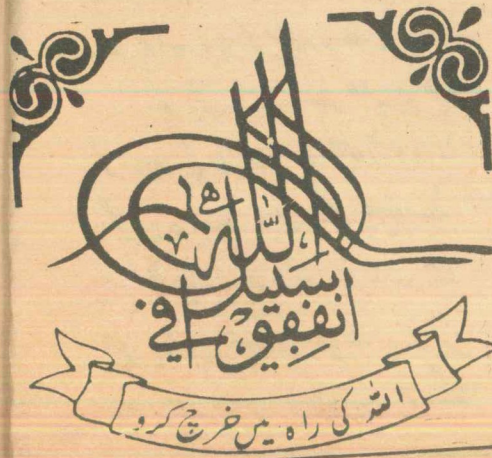 انفِقوا في
سبيل
اللّٰه
اللہ کی راہ میں خرچ کرو